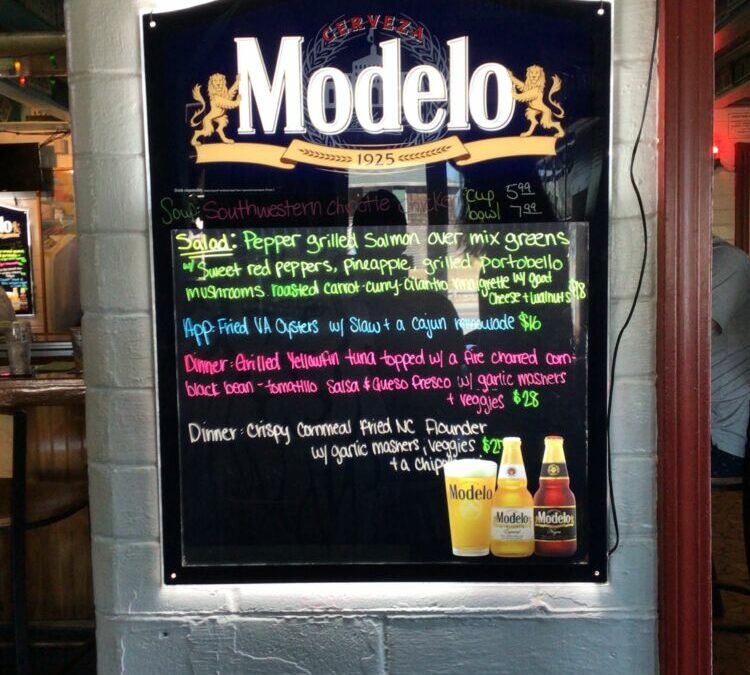 CERVEZA
Modelo
1925
Soup: Southwestern chipotle chicken cup 5.99
bowl 7.99
Salad: Pepper grilled Salmon over mix greens
w/ Sweet red peppers, pineapple, grilled portobello
mushrooms roasted carrot-curry-cilantro w/ goat
cheese + walnuts
App: Fried VA Oysters w/ Slaw + a cajun $16
Dinner: Grilled Yellowfin tuna topped w/ a fire charred corn-
black bean-tomatillo Salsa & Queso fresco w/ garlic mashers
+ veggies $28
Dinner: Crispy Cornmeal Fried NC Flounder
w/ garlic mashers, veggies
+ a
Modelo
Modelo
Modelo
Modelo